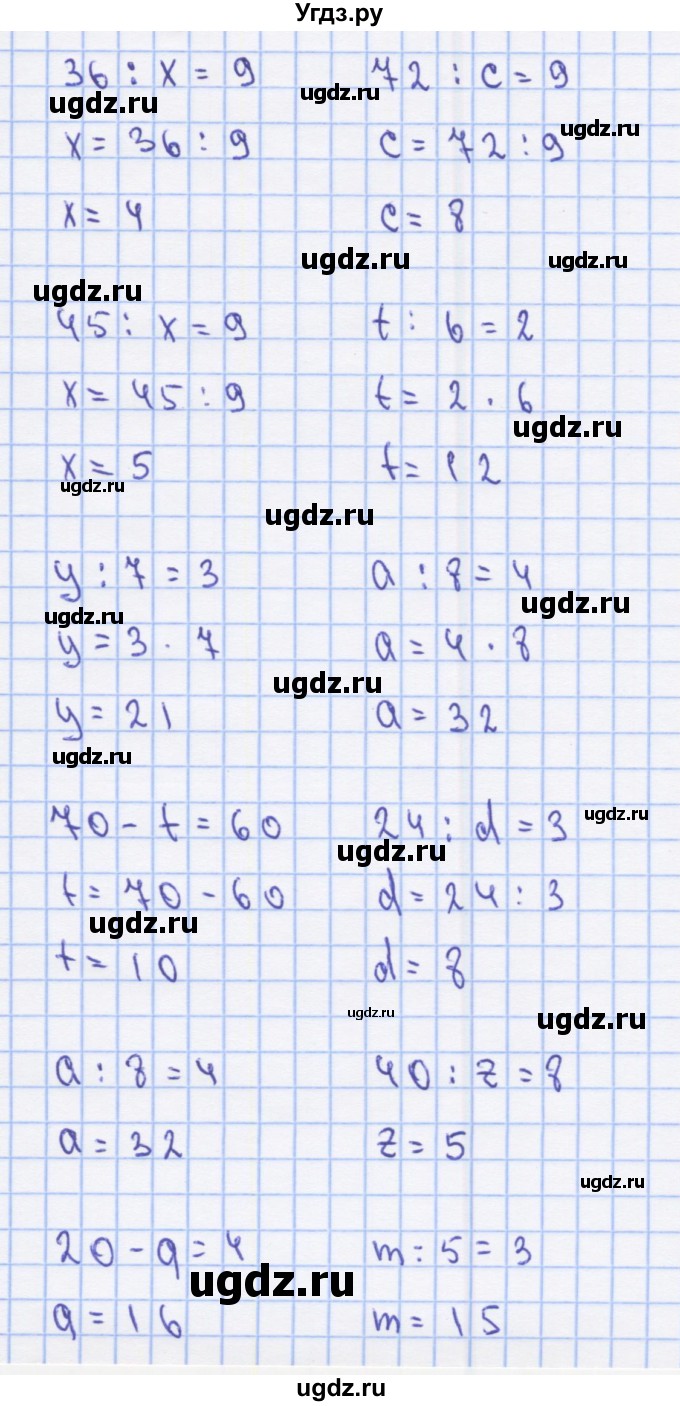 Угдз.ру
36 : x = 9
72 : c = 9
ugdz.ru
ugdz.ru
ugdz.ru
x = 36 : 9
c = 72 : 9
x = 4
c = 8
ugdz.ru
ugdz.ru
ugdz.ru
45 : x = 9
t : 6 = 2
x = 45 : 9
t = 2 · 6
ugdz.ru
x = 5
t = 12
ugdz.ru
ugdz.ru
y : 7 = 3
a : 8 = 4
ugdz.ru
ugdz.ru
y = 3 · 7
a = 4 · 8
ugdz.ru
y = 21
a = 32
ugdz.ru
70 - t = 60
24 : d = 3
ugdz.ru
ugdz.ru
t = 70 - 60
d = 24 : 3
ugdz.ru
t = 10
d = 8
ugdz.ru
ugdz.ru
a : 8 = 4
40 : z = 8
a = 32
z = 5
ugdz.ru
20 - q = 4
m : 5 = 3
ugdz.ru
q = 16
m = 15
ugdz.ru